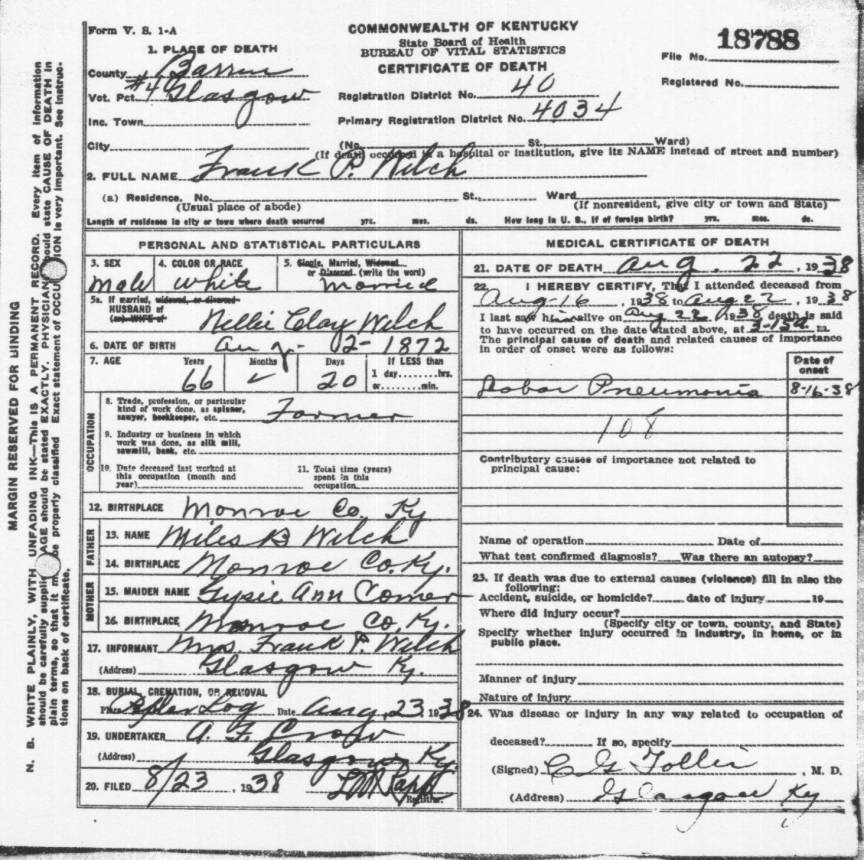 Form V. S. 1-A
COMMONWEALTH OF KENTUCKY
State Board of Health
BUREAU OF VITAL STATISTICS
CERTIFICATE OF DEATH
18788
File No.
Registered No.
1. PLACE OF DEATH
County Barren
Vot. Pct. #4 Glasgow
Inc. Town
City
Registration District No. 40
Primary Registration District No. 4034
(No. St., Ward)
(If death occurred in a hospital or institution, give its NAME instead of street and number)
2. FULL NAME Frank P. Welch
(a) Residence. No. St., Ward
(Usual place of abode) (If nonresident, give city or town and State)
Length of residence in city or town where death occurred yrs. mos. ds. How long in U. S., if of foreign birth? yrs. mos. ds.
PERSONAL AND STATISTICAL PARTICULARS
3. SEX 4. COLOR OR RACE 5. Single, Married, Widowed
or Divorced. (write the word)
male white married
5a. If married, widowed, or divorced
HUSBAND of
(or) WIFE of
Nellie Clay Welch
6. DATE OF BIRTH Aug - 2 - 1872
7. AGE Years Months Days If LESS than
1 day hrs.
or min.
66 20
OCCUPATION
8. Trade, profession, or particular
kind of work done, as spinner,
sawyer, bookkeeper, etc. Farmer
9. Industry or business in which
work was done, as silk mill,
sawmill, bank, etc.
10. Date deceased last worked at
this occupation (month and
year)
11. Total time (years)
spent in this
occupation
12. BIRTHPLACE Monroe Co. Ky
FATHER
13. NAME Miles B Welch
14. BIRTHPLACE Monroe Co. Ky.
MOTHER
15. MAIDEN NAME Ann Comer
16. BIRTHPLACE Monroe Co. Ky.
17. INFORMANT Mrs. Frank P. Welch
(Address) Glasgow Ky.
18. BURIAL, CREMATION, OR REMOVAL
Place Log Date Aug, 23 1938
19. UNDERTAKER A. F. Crow
(Address) Glasgow Ky.
20. FILED 8/23, 1938
Registrar.
MEDICAL CERTIFICATE OF DEATH
21. DATE OF DEATH Aug. 22, 1938
22. I HEREBY CERTIFY, That I attended deceased from
Aug-16, 1938 to Aug 22, 1938
I last saw him alive on Aug 22 1938 death is said
to have occurred on the date stated above, at 3-15 m.
The principal cause of death and related causes of importance
in order of onset were as follows:
Date of
onset
Lobar Pneumonia 8-16-38
108
Contributory causes of importance not related to
principal cause:
Name of operation Date of
What test confirmed diagnosis? Was there an autopsy?
23. If death was due to external causes (violence) fill in also the
following:
Accident, suicide, or homicide? date of injury 19
Where did injury occur?
(Specify city or town, county, and State)
Specify whether injury occurred in industry, in home, or in
public place.
Manner of injury
Nature of injury
24. Was disease or injury in any way related to occupation of
deceased? If so, specify
(Signed) C G , M. D.
(Address) Glasgow Ky
MARGIN RESERVED FOR BINDING
N. B. WRITE PLAINLY, WITH UNFADING INK—This is A PERMANENT RECORD. Every item of information
should be carefully supplied. AGE should be stated EXACTLY. PHYSICIANS should state CAUSE OF DEATH in
plain terms, so that it may be properly classified. Exact statement of OCCUPATION is very important. See instruc-
tions on back of certificate.